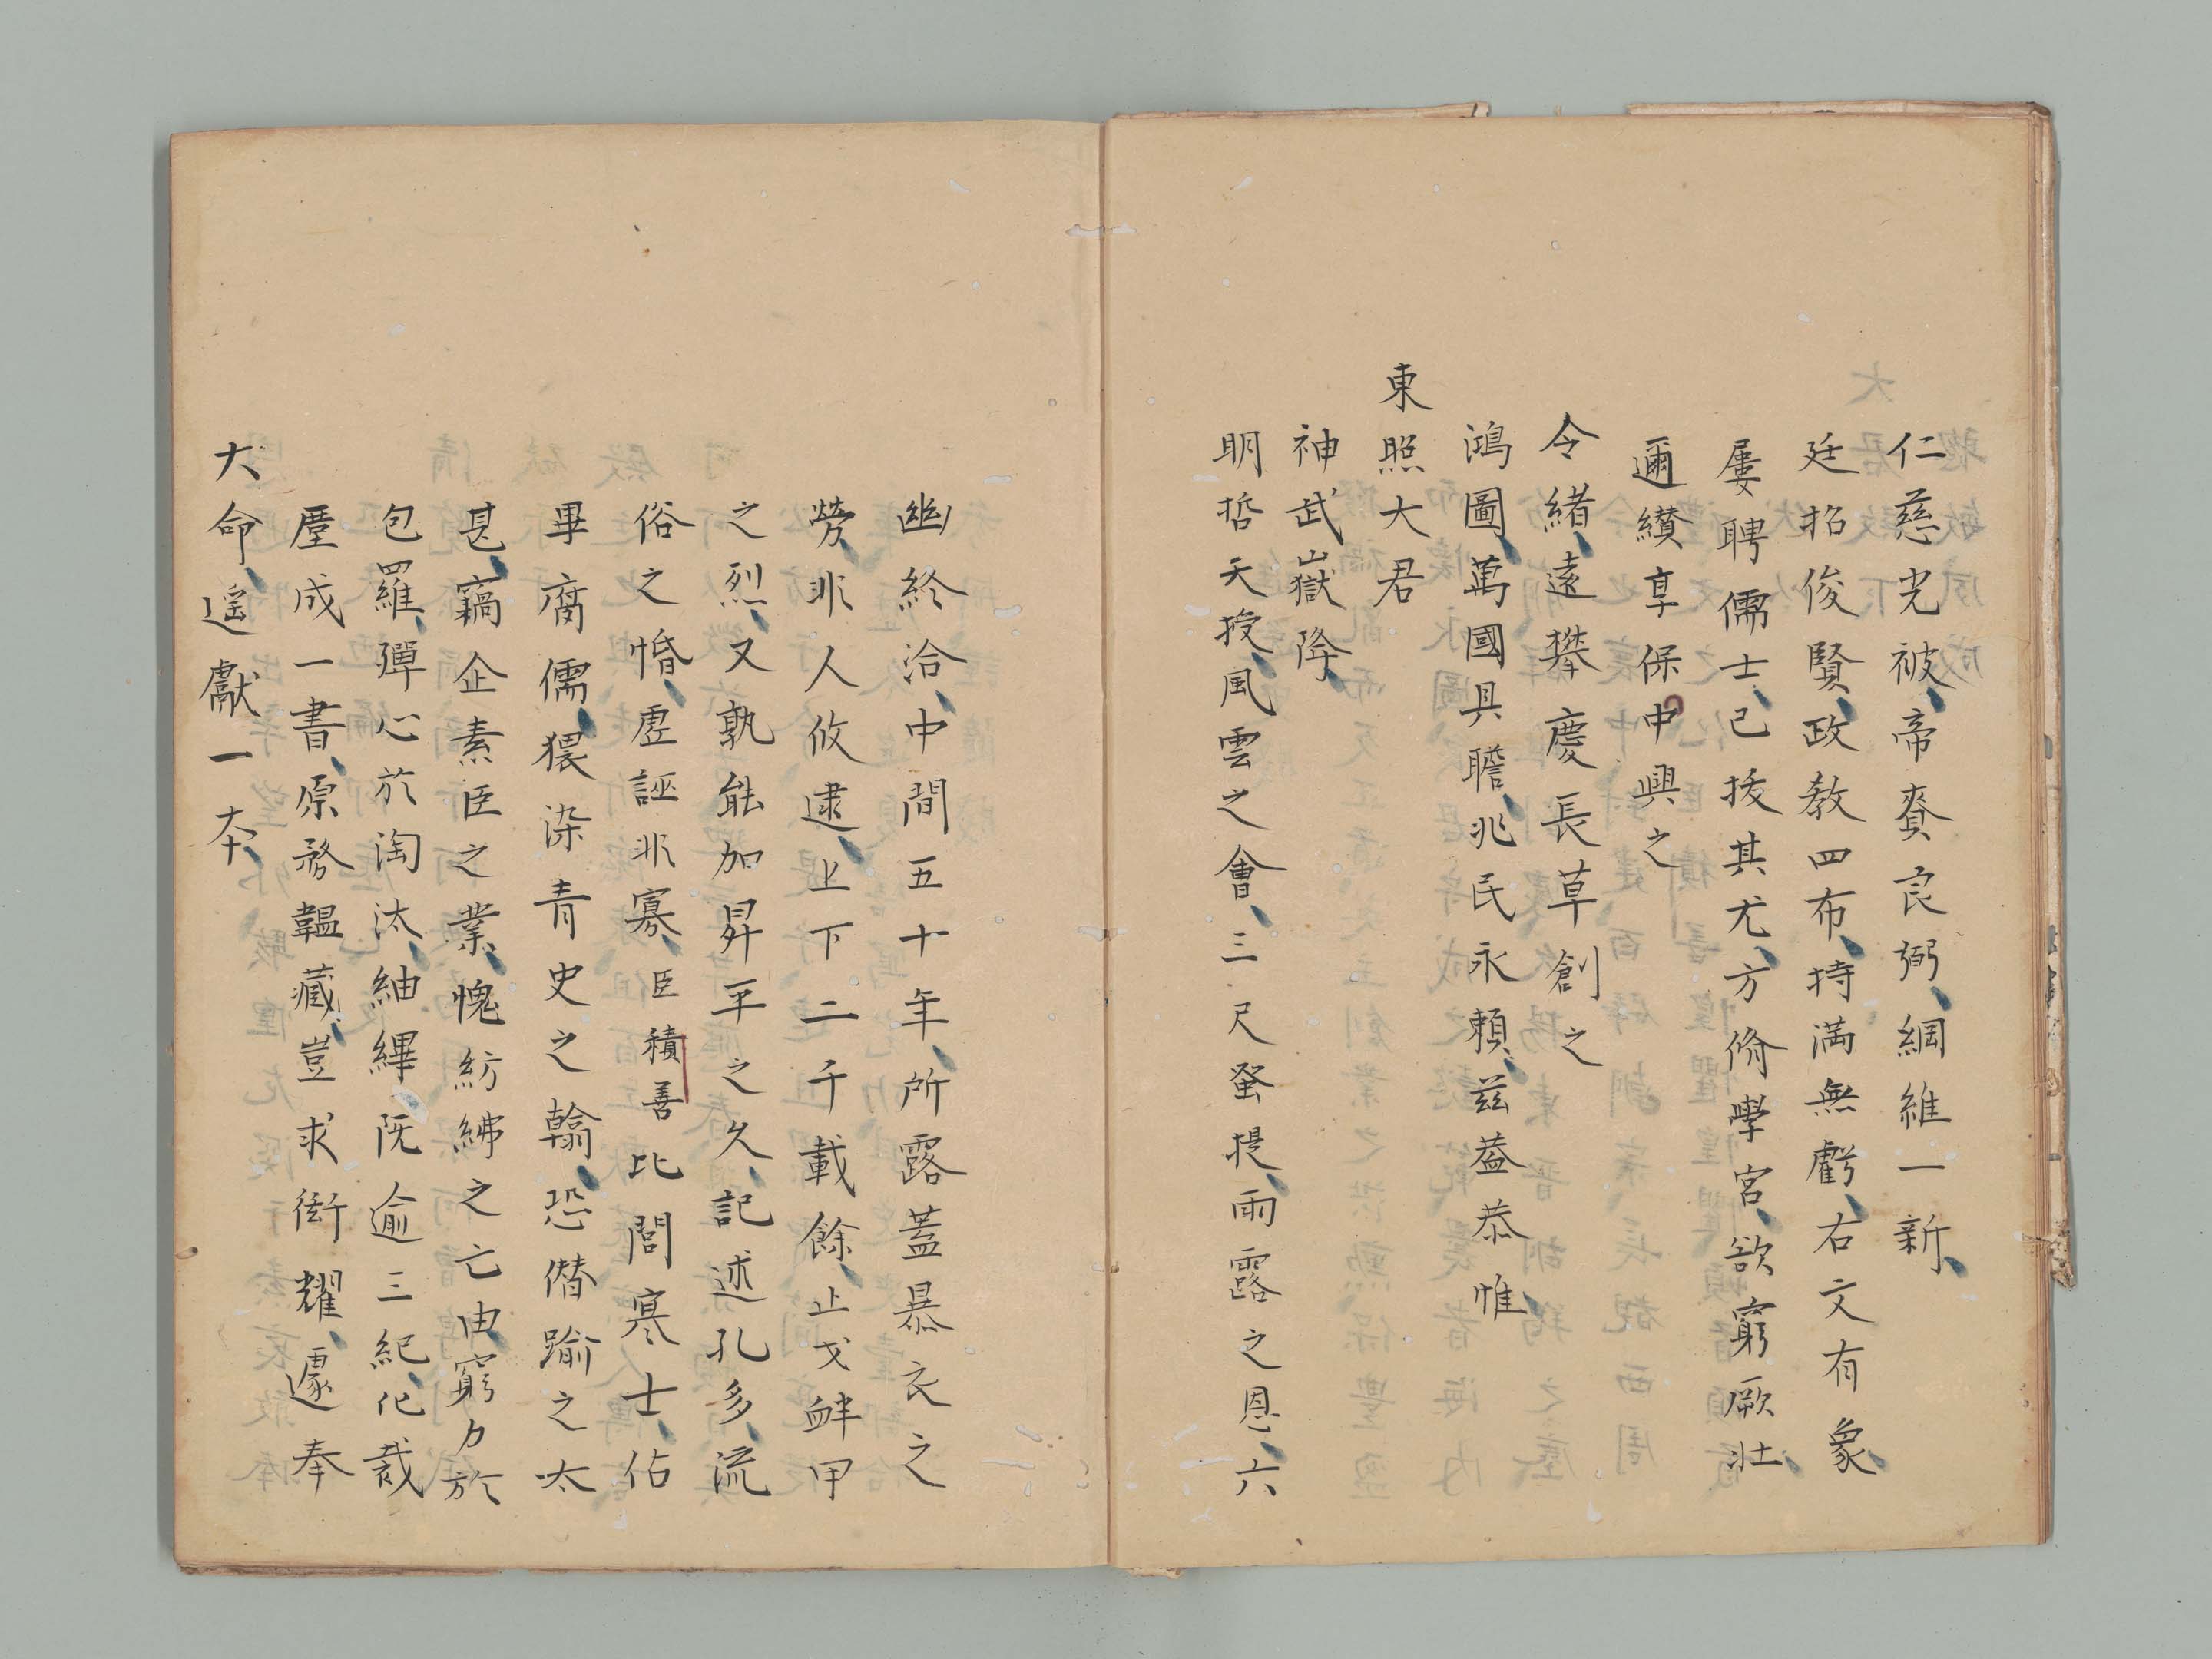 仁慈光被、帝賚良弼、綱維一新、
廷招俊賢、政教四布、持満無虧、右文有象、
屢聘儒士、已拔其尤、方脩學宮、欲窮厥壮、
邇纉享保中興之
令緒、遠攀慶長草創之
鴻圖、萬國具瞻、兆民永頼、茲葢恭惟、
東照大君
神武嶽降、
明哲天授、風雲之會、三尺蛩提、雨露之恩、六
幽終洽、中間五十年、所露蓋暴衣之
勞、非人攸逮、上下二千載餘、止戈衅甲
之烈、又孰能加昇平之久、記述孔多、流
俗之惛、虛誣非寡、臣積善比閭寒士、佔
畢腐儒、猥染青史之翰、恐僭踰之太
甚、竊企素臣之業、愧紡紼之亡由、窮力於
包羅、殫心於淘汰、紬繹既逾三紀、佗裁
㕓成一書、原務韞藏、豈求衒耀、遽奉
大命、遥獻一本、